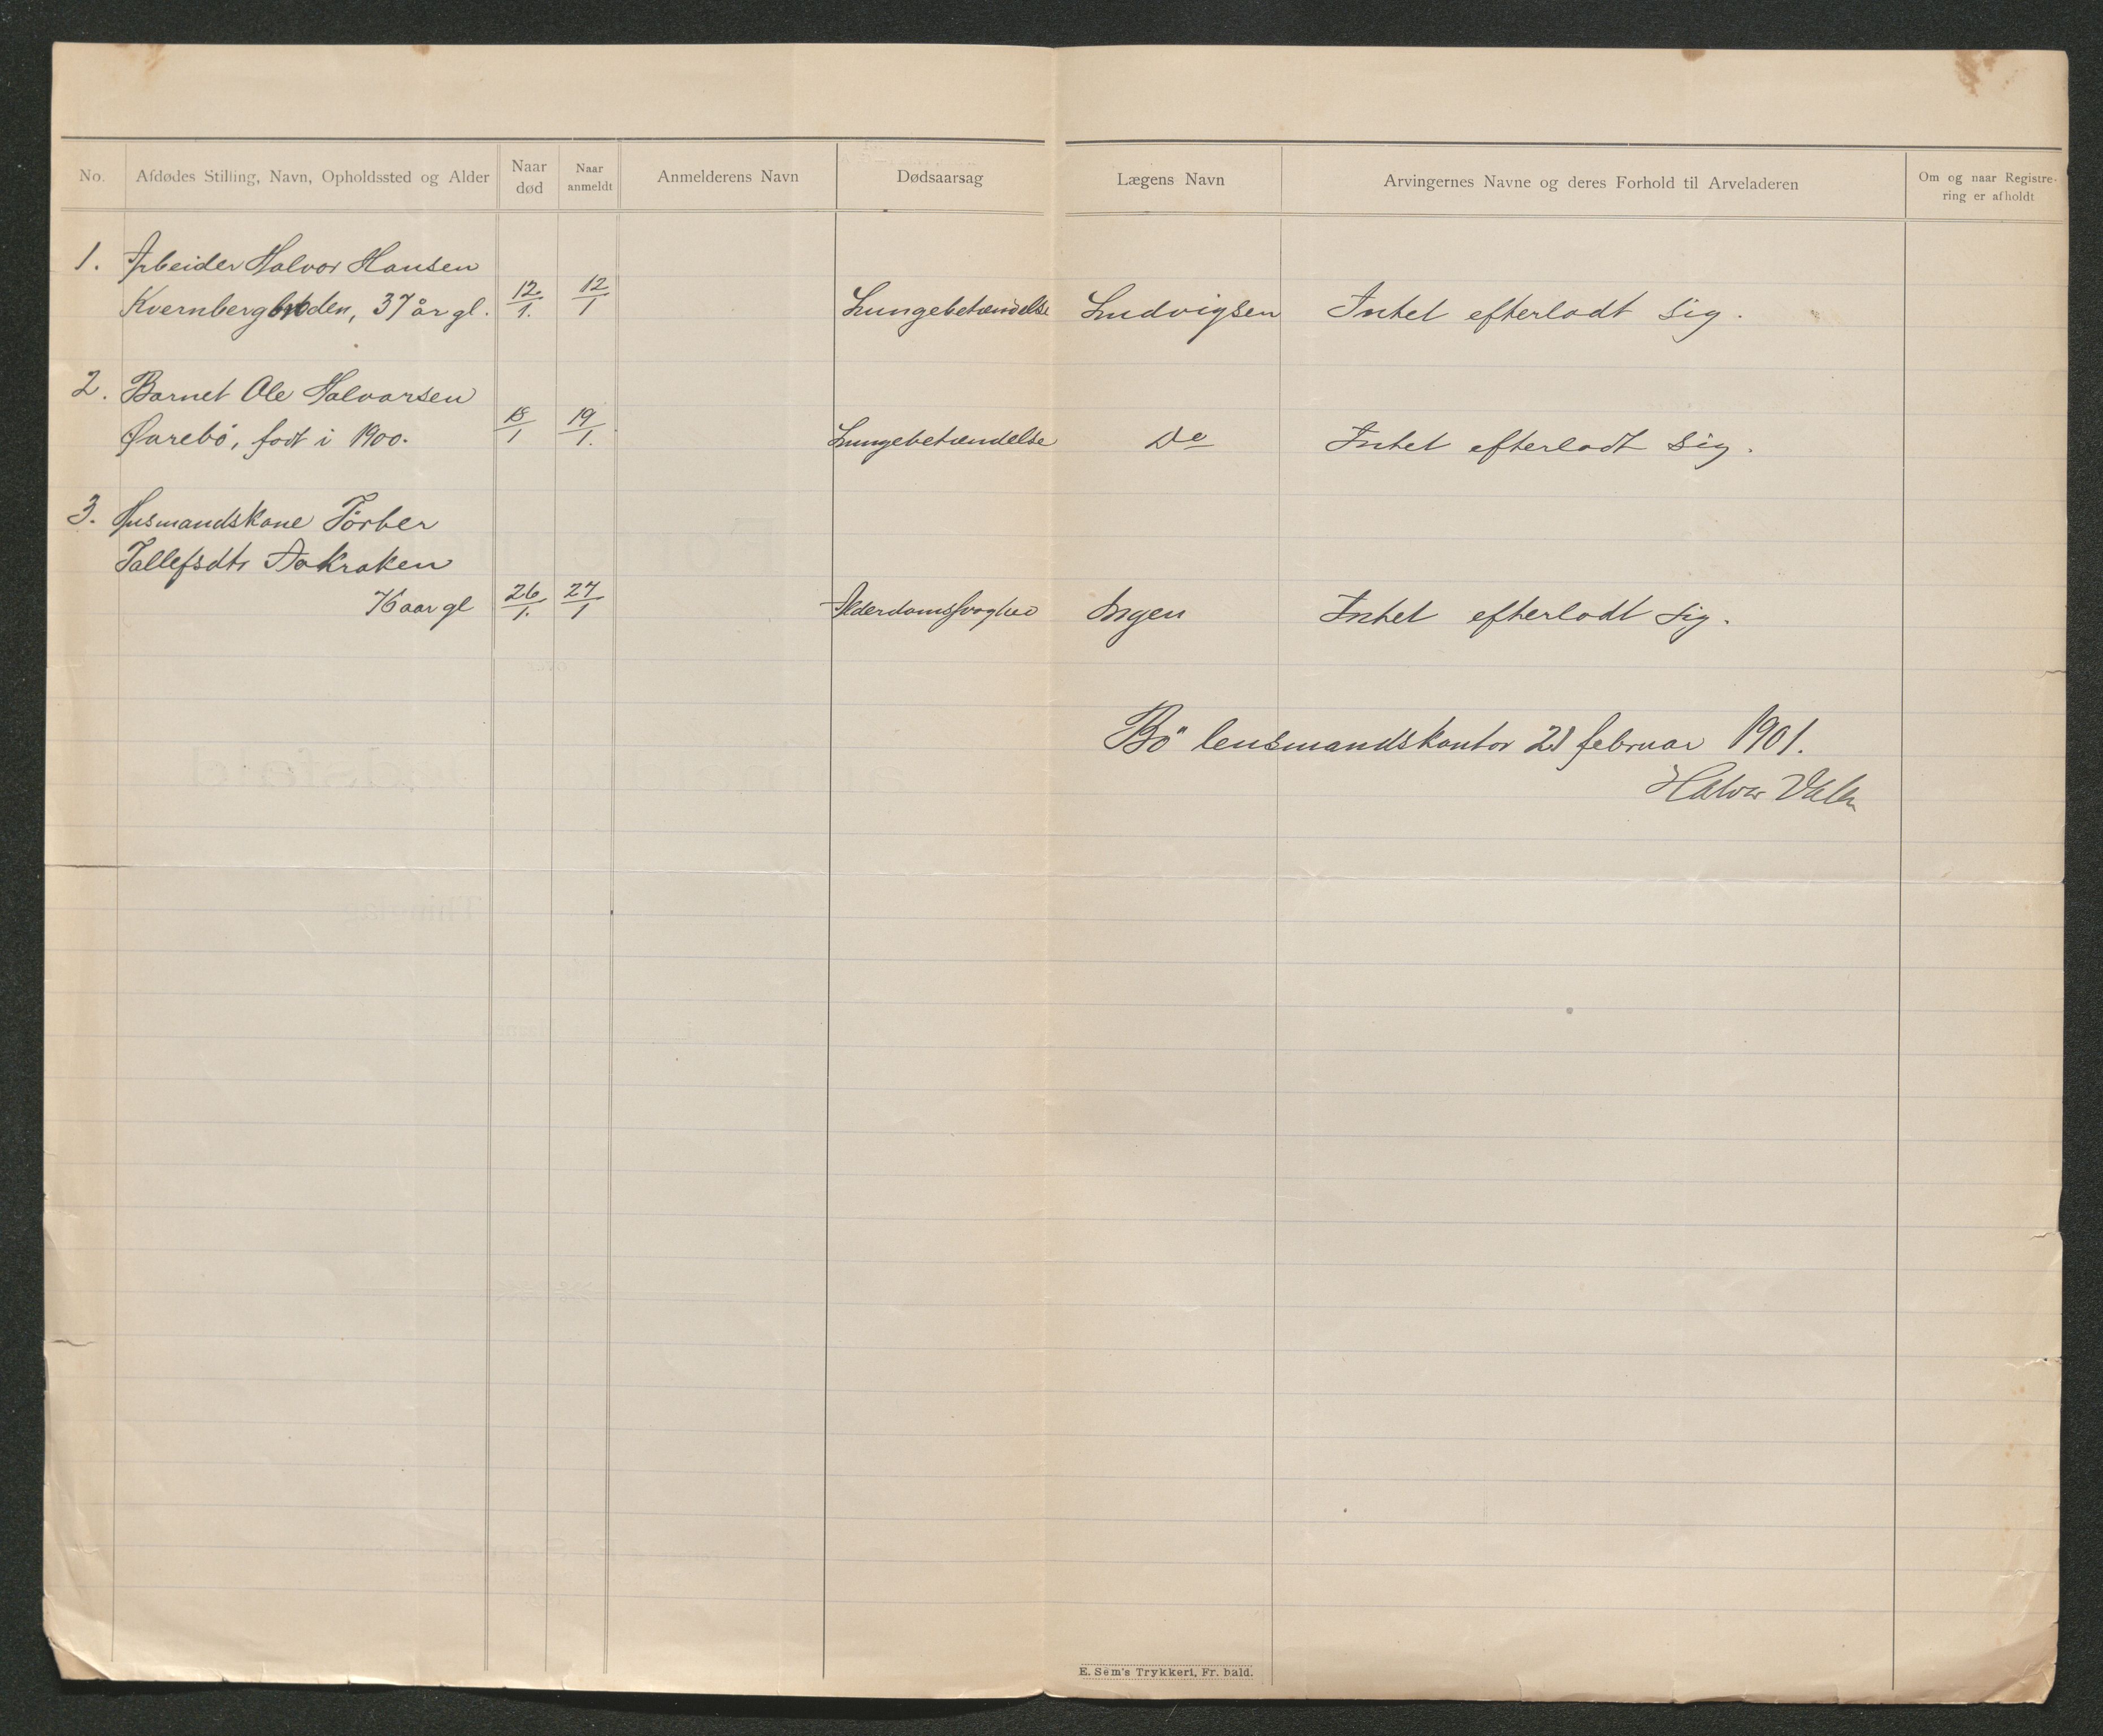 No. Afdødes Stilling, Navn, Opholdssted og Alder Naar død Naar anmeldt Anmelderens Navn Dødsaarsag Lægens Navn Arvingernes Navne og deres Forhold til Arveladeren Om og naar Registrering er afholdt
1. Arbeider Halvor Hansen
Kvernberg, 37 år gl. 12/1. 12/1 Lungebetændelse Ludvigsen Intet efterlodt sig.
2. Barnet Ole Halvorsen
Øvrebö, født i 1900. 18/1 19/1. Lungebetændelse Do Intet efterlodt sig.
3. Husmandskone Törber
Tallefsdtr Aakraken
76 aar gl 26/1. 27/1 Alderdomssvaghed Ingen Intet efterlodt sig.
Bö lensmandskontor februar 1901.
Halvor
E. Sem's Trykkeri, Fr. hald.